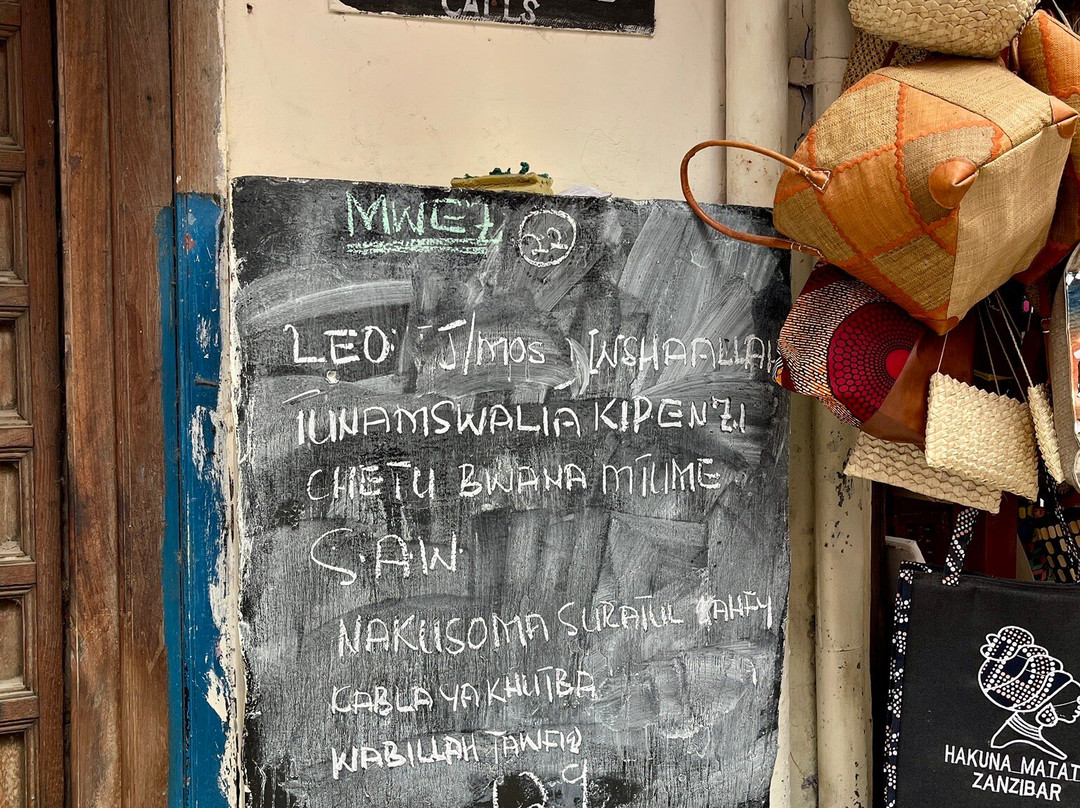 CALLS
MWEZI 22
LEO (J/MOS) INSHAALLAH
TUNAMSWALIA KIPENZI
CHETU BWANA MTUME
S.A.W.
NAKUSOMA SURATUL KAHFY
KABLA YA KHUTBA
WABILLAH TAWFIQ
HAKUNA MATAT
ZANZIBAR